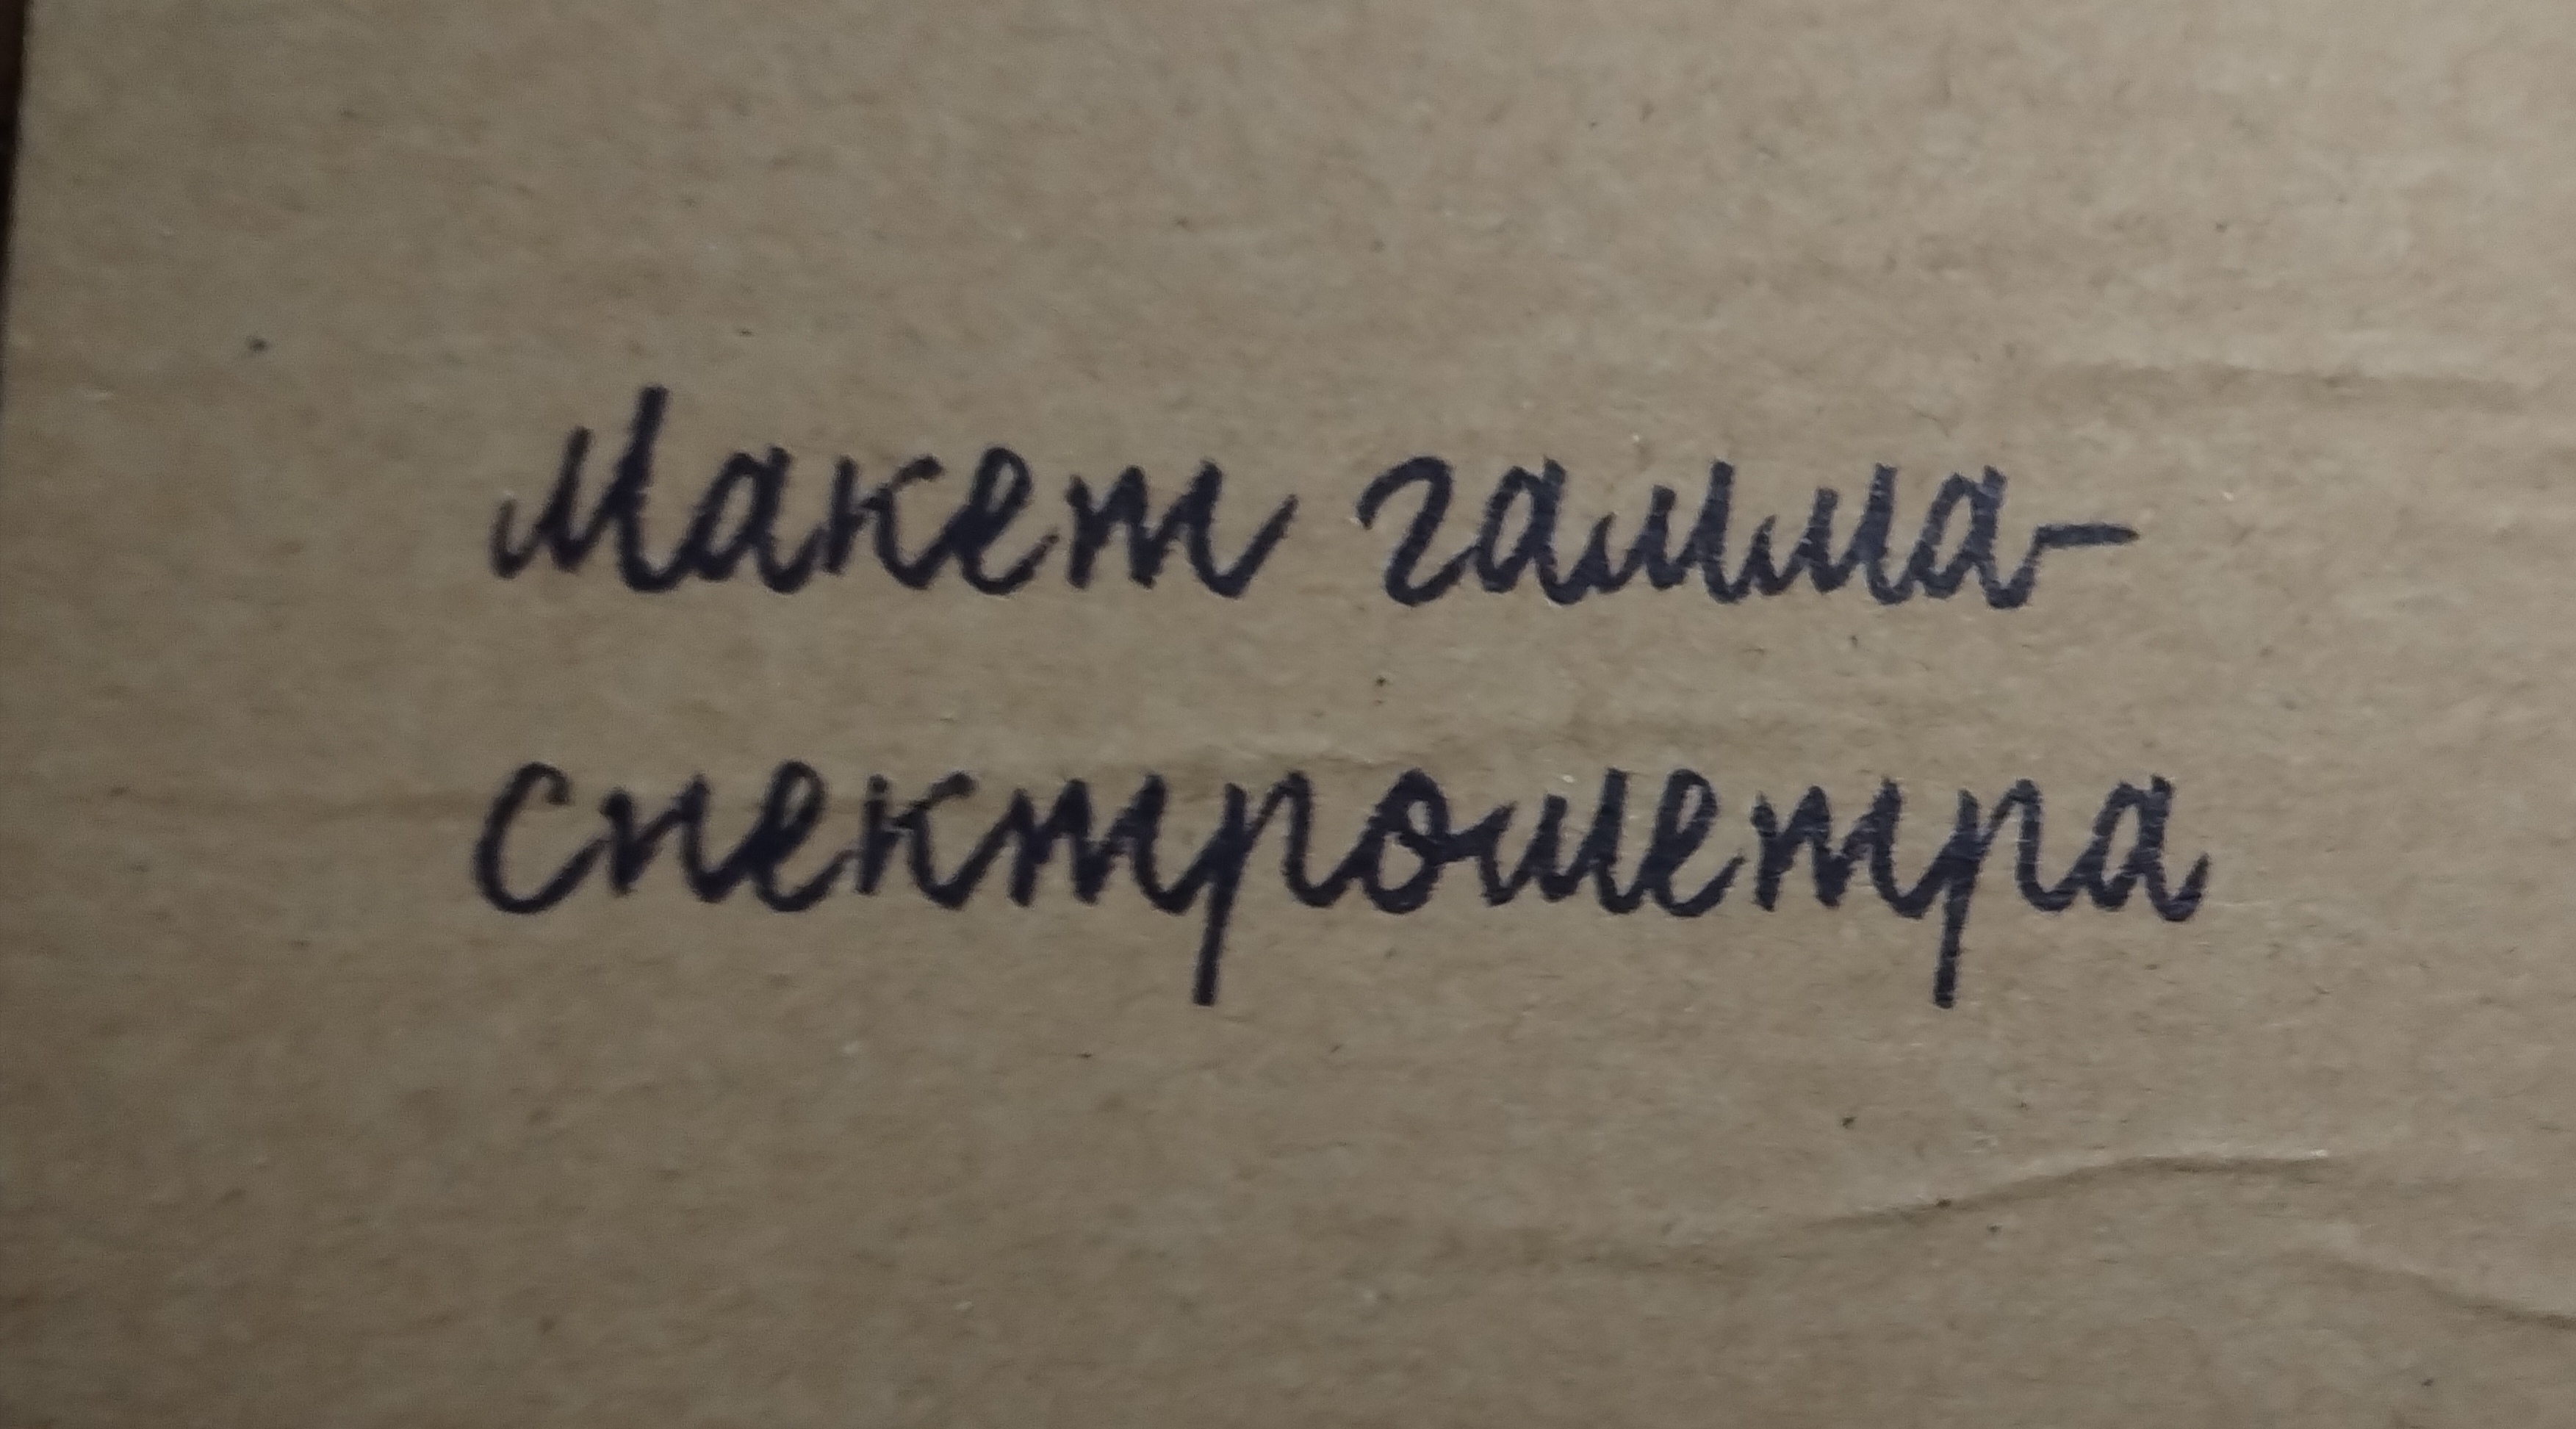 Макет гамма-
спектрометра